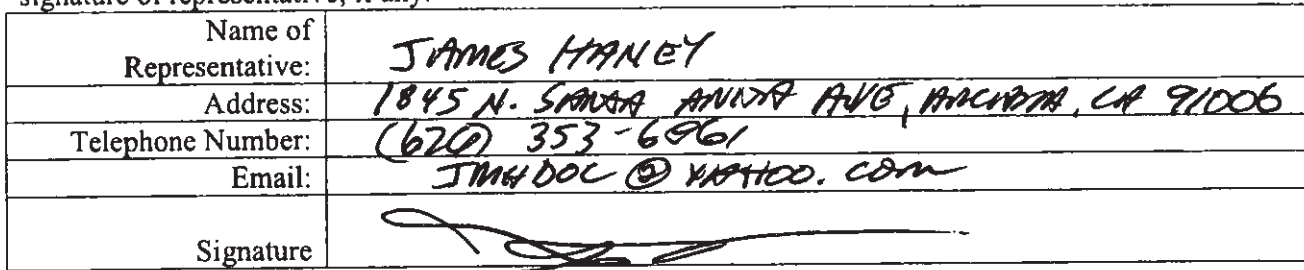 signature of representative, if any.
Name of Representative: JAMES HANEY
Address: 1845 N. SANTA ANITA AVE, ARCADIA, CA 91006
Telephone Number: (626) 353-6961
Email: JMHDOC @ YAHOO. COM
Signature